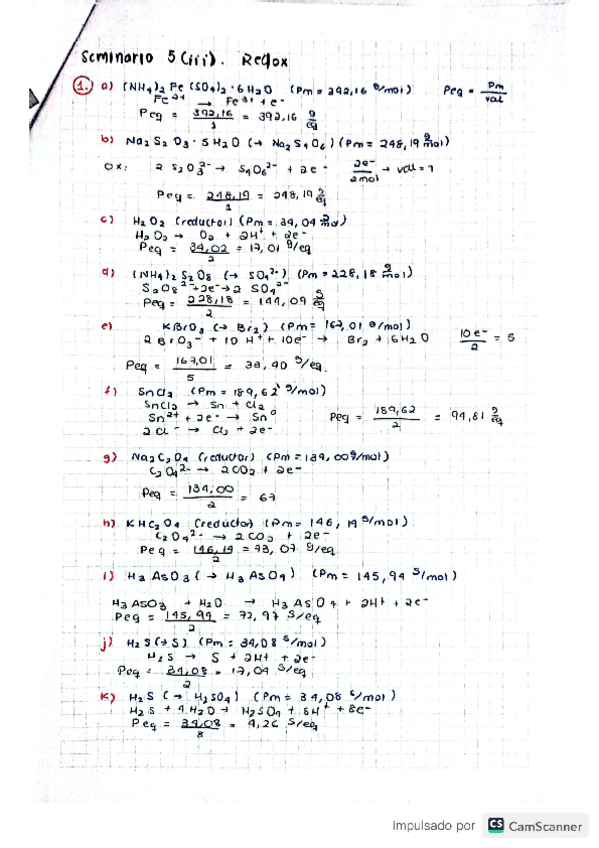 Seminario 5 (iii). Redox
1. a) (NH4)2 Fe (SO4)2 · 6H2O (Pm = 392,16 g/mol) Peq = Pm/val
Fe2+ → Fe3+ + e-
Peq = 392,16/1 = 392,16 g/eq
b) Na2S2O3 · 5H2O (→ Na2S4O6) (Pm = 248,19 g/mol)
Ox: 2 S2O3 2- → S4O6 2- + 2e- 2e-/2mol → val = 1
Peq = 248,19/1 = 248,19 g/eq
c) H2O2 (reductor) (Pm = 34,04 g/mol)
H2O2 → O2 + 2H+ + 2e-
Peq = 34,02/2 = 17,01 g/eq
d) (NH4)2S2O8 (→ SO4 2-) (Pm = 228,18 g/mol)
S2O8 2- + 2e- → 2 SO4 2-
Peq = 228,18/2 = 144,09 g/eq
e) KBrO3 (→ Br2) (Pm = 167,01 g/mol)
2 BrO3- + 10H+ + 10e- → Br2 + 6H2O 10e-/2 = 5
Peq = 167,01/5 = 33,40 g/eq.
f) SnCl2 (Pm = 189,62 g/mol)
SnCl2 → Sn + Cl2
Sn2+ + 2e- → Sn0 Peq = 189,62/2 = 94,81 g/eq
2Cl- → Cl2 + 2e-
g) Na2C2O4 (reductor) (Pm = 134,00 g/mol)
C2O4 2- → 2CO2 + 2e-
Peq = 134,00/2 = 67
h) KHC2O4 (reductor) (Pm = 146,14 g/mol)
C2O4 2- → 2CO2 + 2e-
Peq = 146,14/2 = 73,07 g/eq
i) H3AsO3 (→ H3AsO4) (Pm = 145,94 g/mol)
H3AsO3 + H2O → H3AsO4 + 2H+ + 2e-
Peq = 145,94/2 = 72,97 g/eq
j) H2S (→ S) (Pm = 34,08 g/mol)
H2S → S + 2H+ + 2e-
Peq = 34,08/2 = 17,04 g/eq
k) H2S (→ H2SO4) (Pm = 34,08 g/mol)
H2S + 4H2O → H2SO4 + 8H+ + 8e-
Peq = 34,08/8 = 4,26 g/eq
Impulsado por CS CamScanner